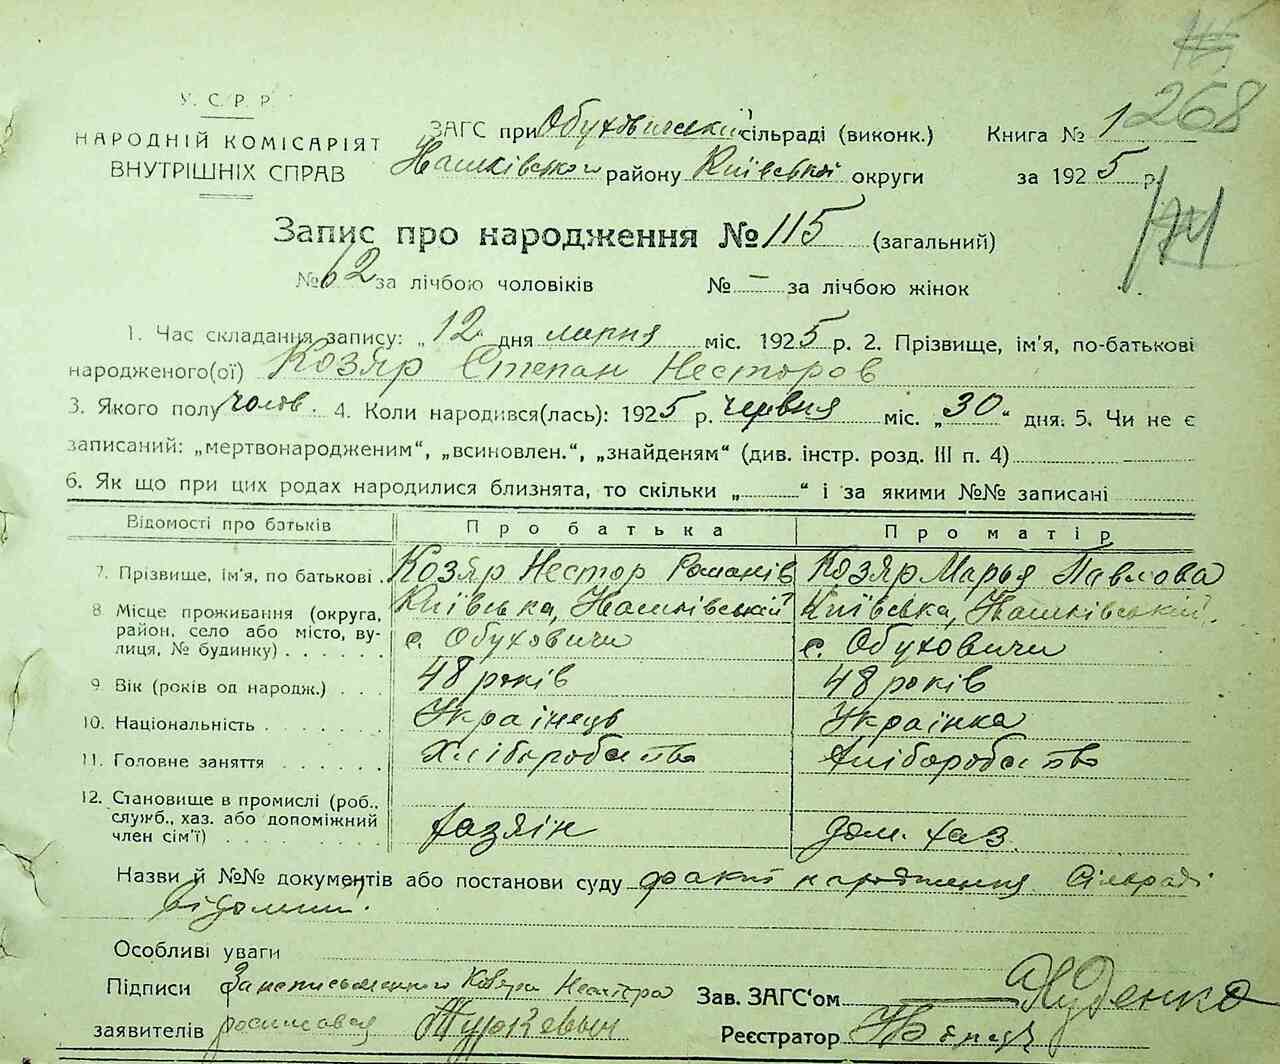 У. С. Р. Р.
268
НАРОДНІЙ КОМІСАРІЯТ
ВНУТРІШНІХ СПРАВ
ЗАГС при Обуховицькій сільраді (виконк.) Книга № 1
району Київської округи за 1925 р.
Запис про народження № 115 (загальний)
№ 62 за лічбою чоловіків № — за лічбою жінок
1. Час складання запису: „12“ дня липня міс. 1925 р. 2. Прізвище, ім'я, по-батькові
народженого(ої) Козяр Степан Несторов
3. Якого полу чолов. 4. Коли народився(лась): 1925 р. червня міс. „30“ дня. 5. Чи не є
записаний: „мертвонародженим“, „всиновлен.“, „знайденям“ (див. інстр. розд. III п. 4)
6. Як що при цих родах народилися близнята, то скільки „ “ і за якими №№ записані
Відомості про батьків Про батька Про матір
7. Прізвище, ім'я, по батькові . Козяр Нестор Романів Козяр Марья Павлова
8 Місце проживання (округа, район, село або місто, вулиця, № будинку) . . . . . Київська, с. Обуховичи Київська, с. Обуховичи
9 Вік (років од народж.) . . . 48 років 48 років
10. Національність . . . . . . Украінець Украінка
11. Головне заняття . . . . . . Хліборобство Хліборобство
12. Становище в промислі (роб., служб., хаз. або допоміжний член сім'ї) . . . . . . . . . хазяін дом. хаз.
Назви й №№ документів або постанови суду факт народження Сільраді
відомий.
Особливі уваги
Підписи Козяра Нестора Зав. ЗАГС'ом Куденко
заявителів росписався Реєстратор